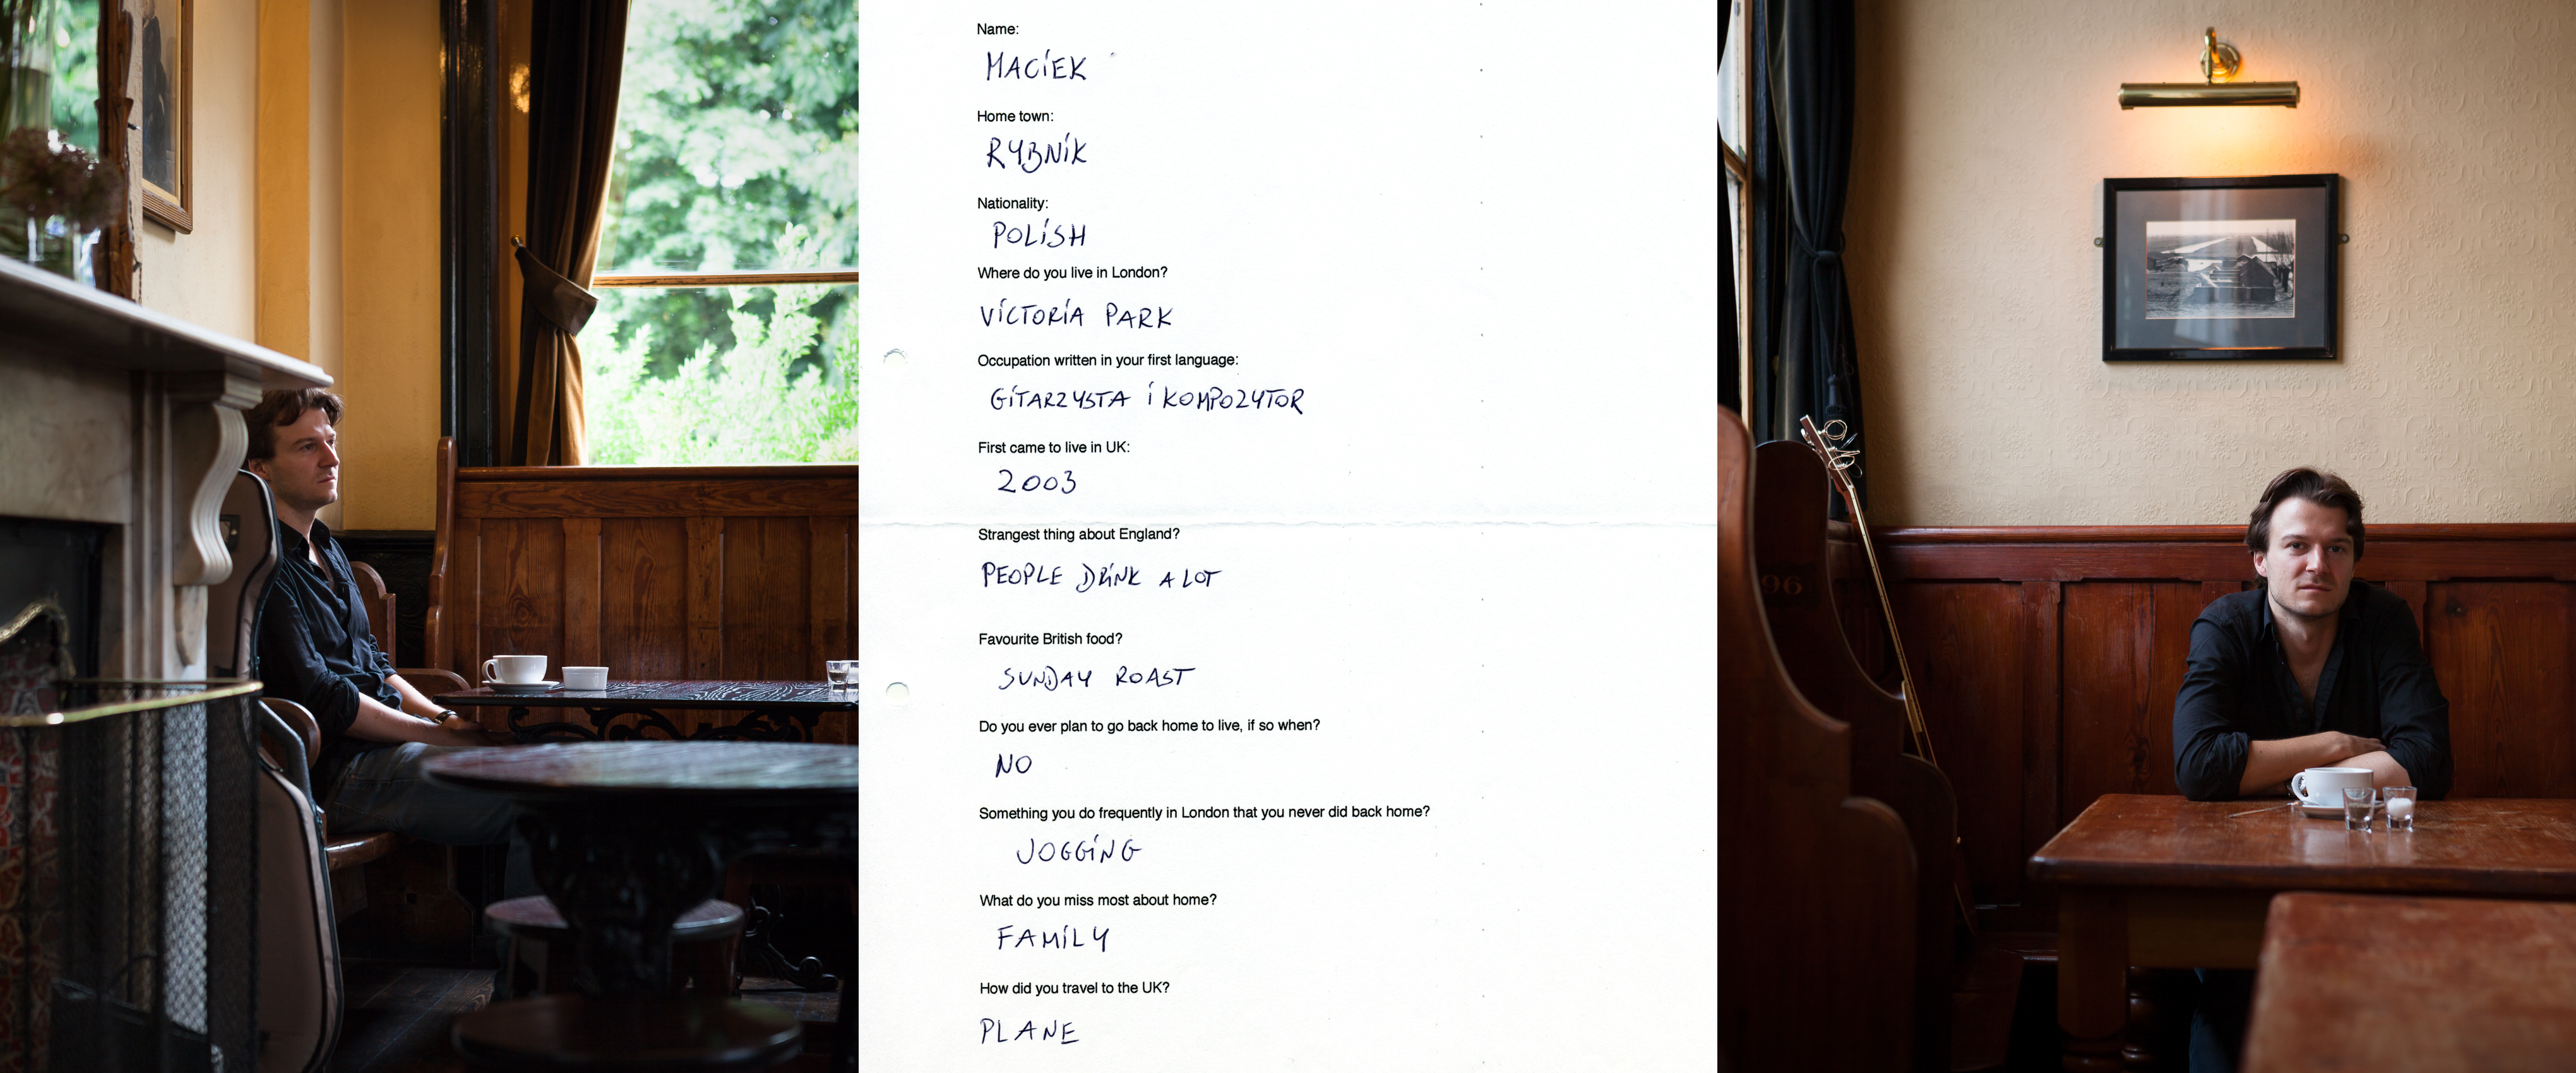 Name:
MACIEK
Home town:
RYBNIK
Nationality:
POLISH
Where do you live in London?
VICTORIA PARK
Occupation written in your first language:
GITARZYSTA I KOMPOZYTOR
First came to live in UK:
2003
Strangest thing about England?
PEOPLE DRINK A LOT
Favourite British food?
SUNDAY ROAST
Do you ever plan to go back home to live, if so when?
NO
Something you do frequently in London that you never did back home?
JOGGING
What do you miss most about home?
FAMILY
How did you travel to the UK?
PLANE
96